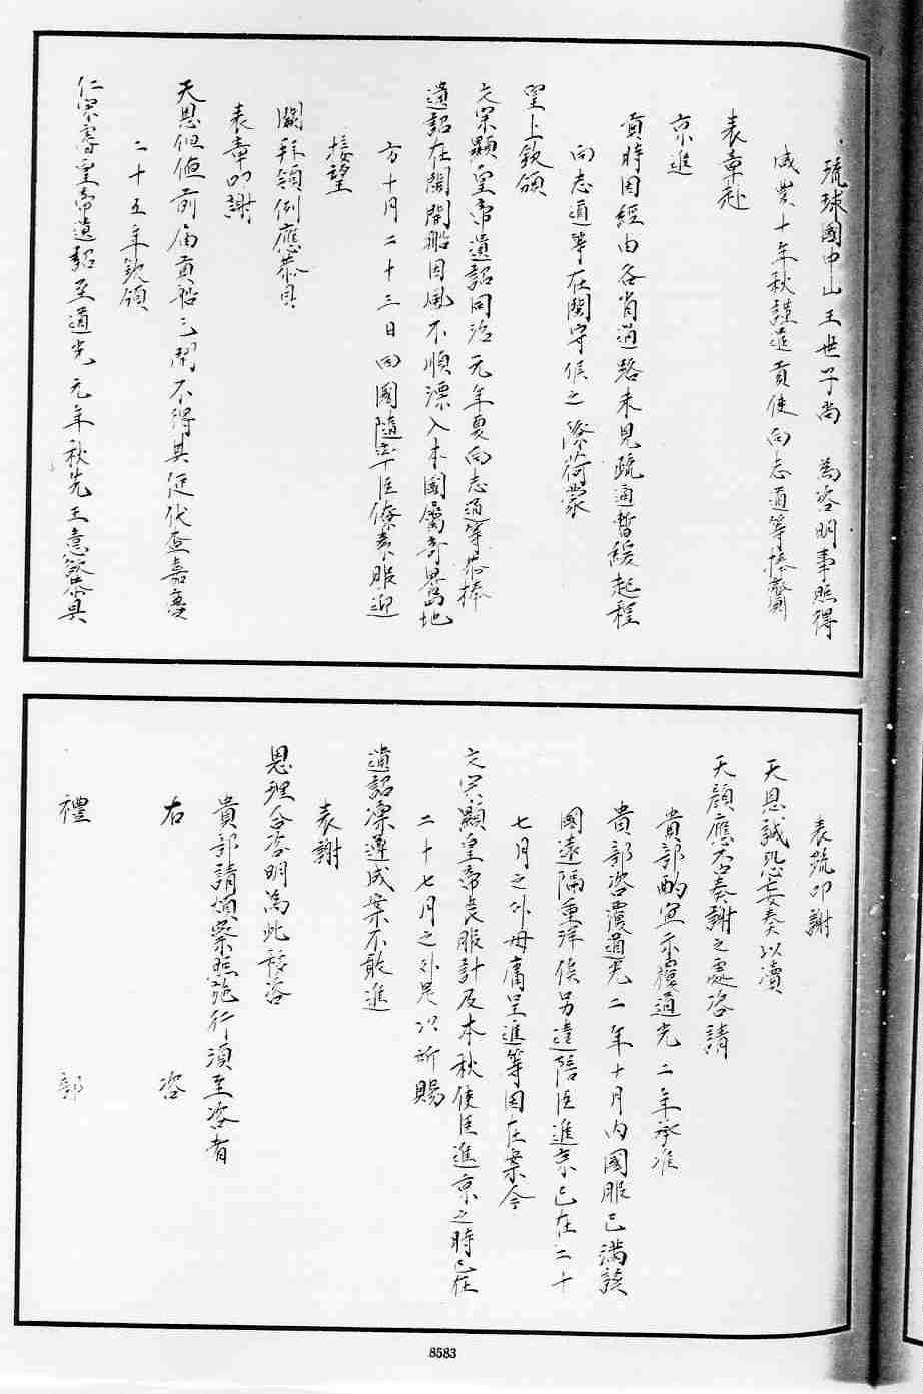 琉球國中山王世子尚　為咨明事照得
咸豊十年秋謹遣貢使向志道等捧齎
表章赴
京進
貢時因經由各省道路未見疏通暫緩起程
向志道等在閩守候之際荷蒙
皇上欽頒
文宗顯皇帝遺詔同治元年夏向志道等恭捧
遺詔在閩開船因風不順漂入本國屬奇界島地
方十月二十三日回國隨率臣僚素服迎
接望
闕拜領例應恭具
表章叩謝
天恩但值前届貢船已開不得其從代查嘉慶
二十五年欽領
仁宗睿皇帝遺詔至道光元年秋先王意欲恭具
表疏叩謝
天恩誠恐妄奏以瀆
天顔應否奏謝之處咨請
貴部酌宜示覆道光二年承准
貴部咨覆道光二年十月內國服已滿該
國遠隔重洋俟另遣陪臣進京已在二十
七月之外毋庸呈進等因在案今
文宗顯皇帝喪服計及本秋使臣進京之時已在
二十七月之外是以所賜
遺詔凜遵成案不敢進
表謝
恩理合咨明為此移咨
貴部請煩察照施行須至咨者
右　咨
禮　部
8583